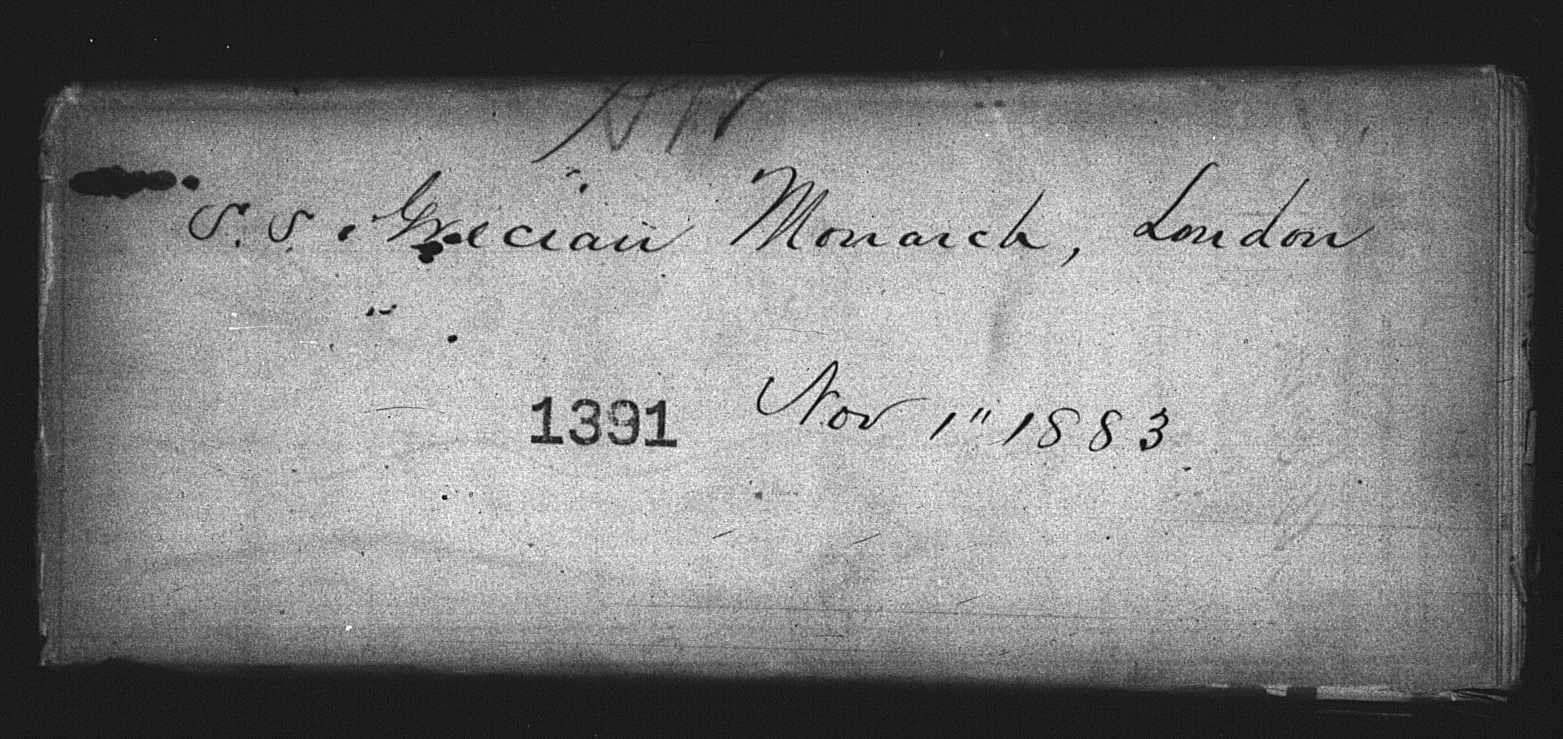 S. S. Grecian Monarch, London
1391 Nov 1" 1883